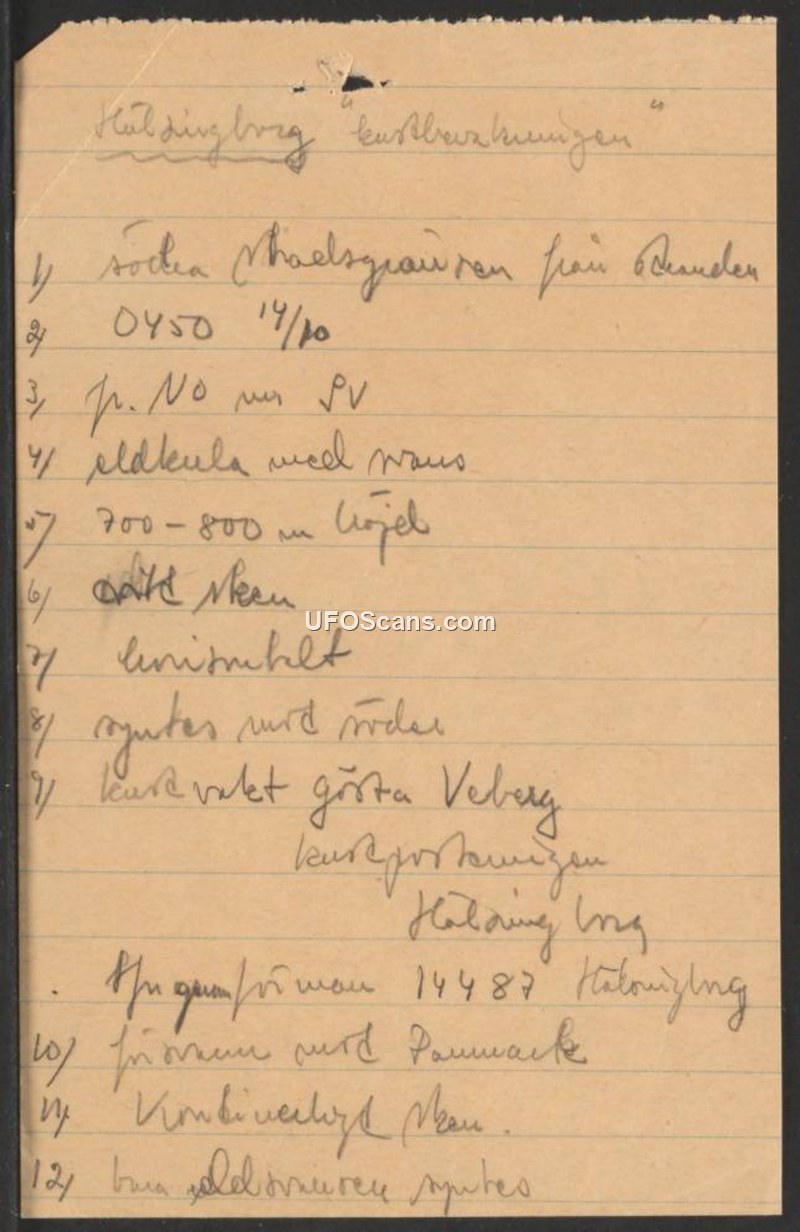 Hälsingborg "kustbevakningen"
1) södra stadsgränsen från stranden
2) 0450 14/10
3) fr. NO mv SV
4) eldkula med svans
5) 700-800 m höjd
6) vitt sken
7) horisontalt
8) syntes mot söder
9) kustvakt Gösta Veberg
kustposteringen
Hälsingborg
genom förman 14487 Hälsingborg
10) försvann mot Danmark
11) Kontinuerligt sken.
12) bara eldsvansen syntes
UFOScans.com